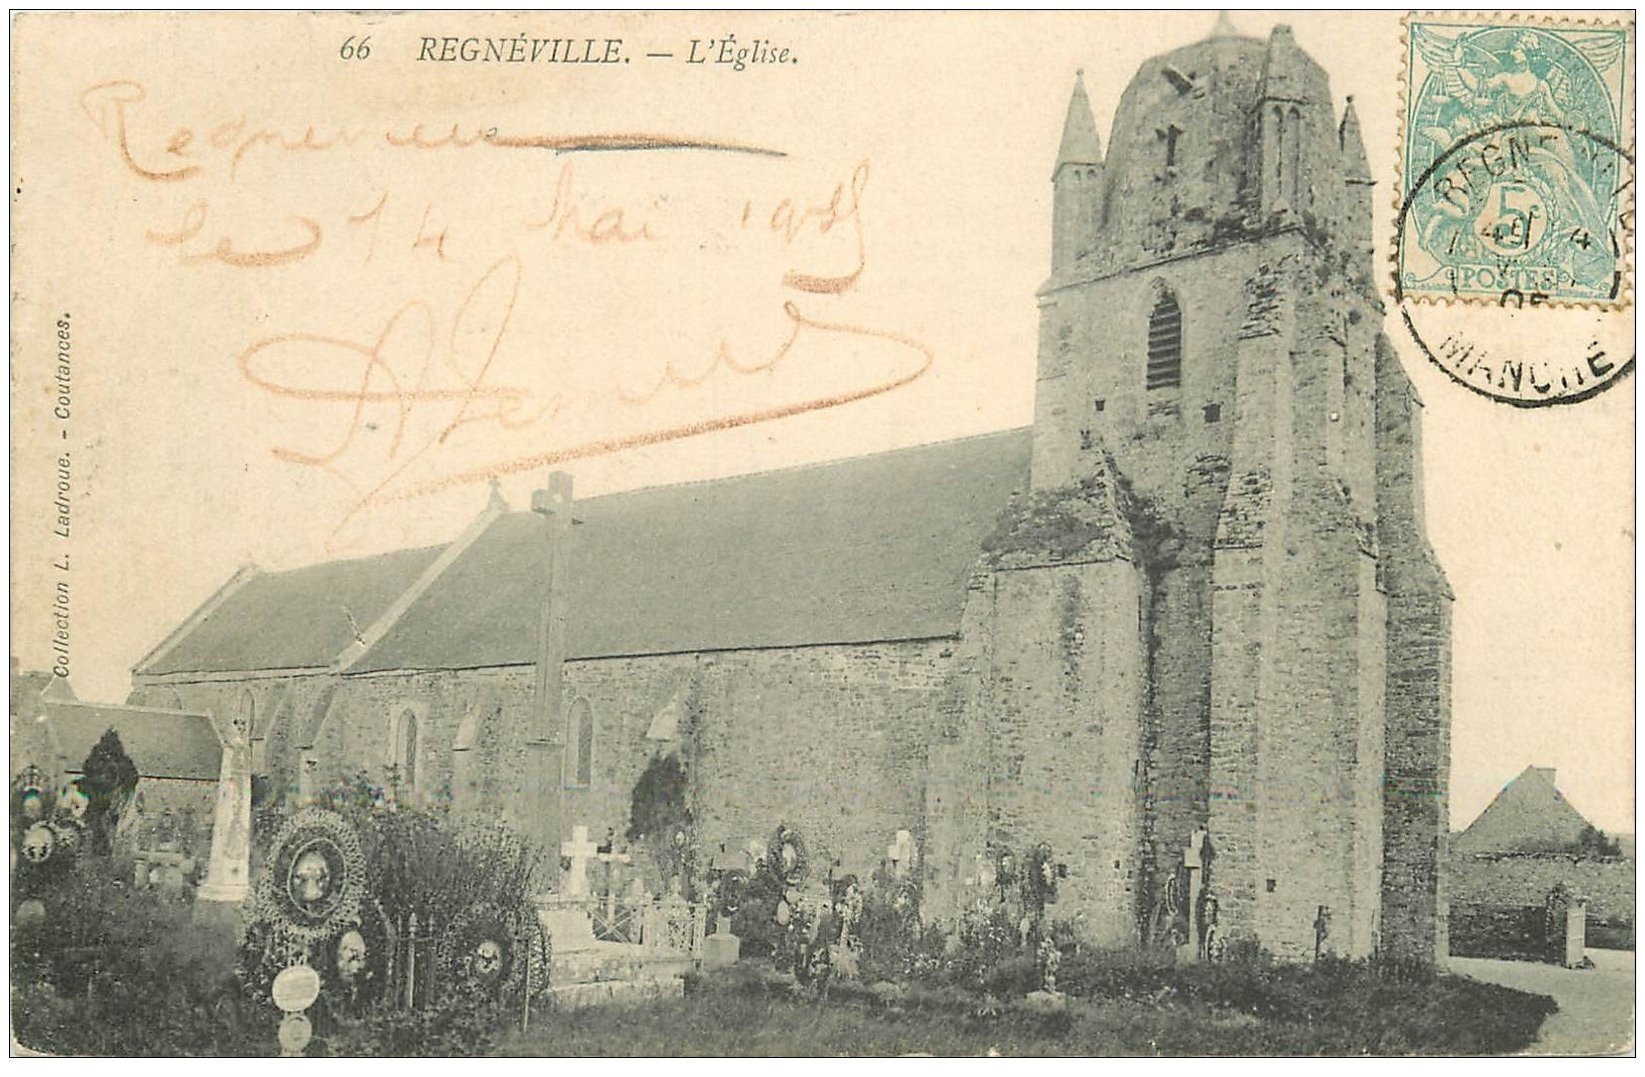 66 REGNÉVILLE. — L'Église.
Regneville
le 14 Mai 1905
Collection L. Ladroue. - Coutances.
5
POSTES
REGNEVILLE
MANCHE